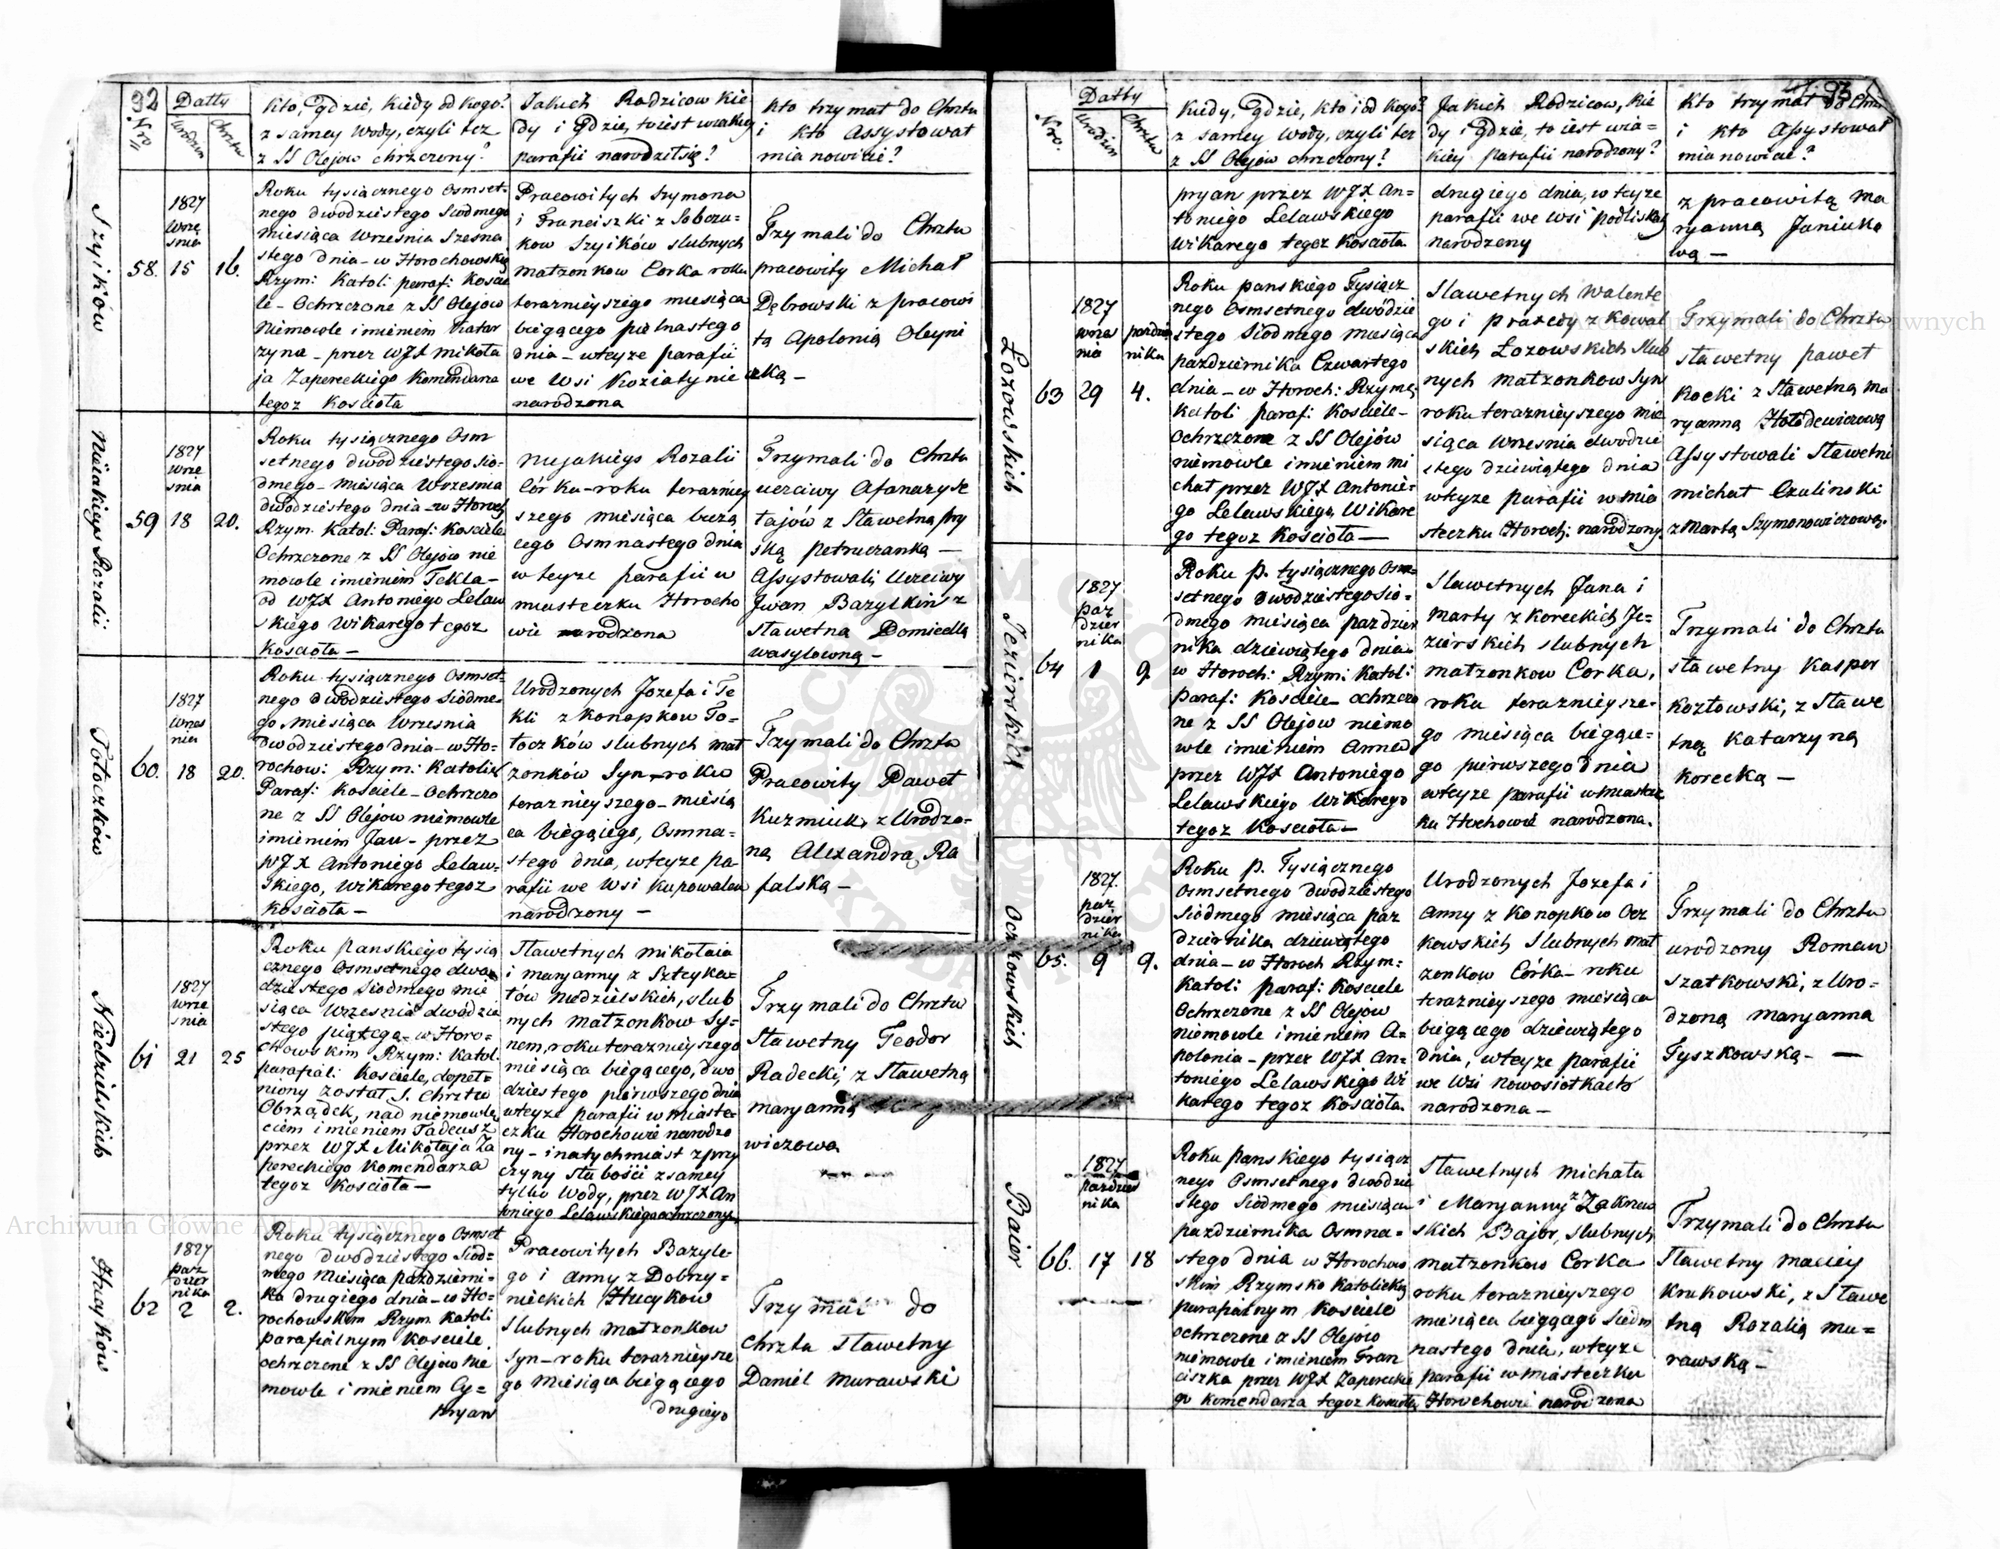 92
Datty
Nro
Urodzin
Chrztu
Kto, gdzie, kiedy od kogo?
z samey wody, czyli też
z SS Olejow chrzczony?
Jakich Rodzicow kie
dy i gdzie, toiest w iakiey
parafii narodził się?
kto trzymał do Chrztu
i kto Assystował
mianowicie?
Szyików
58.
1827
Wrze
snia
15
16.
Roku tysiącznego Osmset-
nego dwodziestego Siodmego
miesiąca Września Szesna
stego dnia – w Horochowskim
Rzym: Katoli: paraf: Koscie
le – Ochrzczone z SS Olejow
Niemowle imieniem Katar
zyna – przez WJX Mikoła
ja Zapereckiego Komendarza
tegoz Kościoła
Pracowitych Szymona
i Franciszki z Sobczu-
kow Szyików slubnych
matzonkow Corka roku
teraznieyszego miesiąca
biegącego piętnastego
dnia – wteyze parafii
we Wsi Koziatynie
narodzona
Trzymali do Chrztu
pracowity Michał
Dębrowski z pracowi
tą Apolonią Oleyni
czką –
Niiakieys Rozalii
59
1827
Wrze
snia
18
20.
Roku tysiącznego Osm
setnego dwódziestego Sio-
dmego – miesiąca Września
dwodziestego dnia – w Horoch
Rzym. Katol: Paraf: Kosciele
Ochrzczone z SS Olejow nie
mowle imieniem Tekla –
od WJX Antoniego Lelaw
skiego Wikarego tegoz
Kościoła –
niejakieys Rozalii
Córka – roku terazniey
szego miesiąca bieżą
cego Osmnastego dnia
w teyze parafii w
miasteczku Horocho
wie narodzona
Trzymali do Chrztu
uczciwy Afanazy Sc
tajów z Sławetną Pry
ską petruczanką –
Assystowali Uczciwy
Jwan Bazylkin z
sławetna Domicellą
wasylowną –
Tołoczków
60.
1827
Wrzes
nia
18
20.
Roku tysiącznego Osmset-
nego dwodziestego Siódme-
go, miesiąca Września
Dwódziestego dnia – w Ho-
rochow: Rzym: Katolik
Paraf: Kościele – Ochrzczo
ne z SS Olejów niemowle
imieniem Jan – przez
WJX Antoniego Lelaw-
skiego, Wikarego tegoz
Kościoła –
Urodzonych Jozefa i Te
kli z Konopkow To-
łoczków slubnych mał
zonków Syn – roku
terazniey szego – miesią
ca biegącego, Osmna-
stego dnia, wteyze pa-
rafii we Wsi Kupowalcu
narodzony –
Trzymali do Chrztu
Pracowity Paweł
Kuzmiuk, z Urodzo-
ną Alexandrą Ra
falską –
Niedzielskich
61
1827
Wrze
snia
21
25
Roku panskiego tysią
cznego Osmsetnego dwo
dziestego Siodmego mie
siąca Września dwodzie
stego piątego – w Horo-
chowskim Rzym: Katol:
parafial: Kosciele, dopeł-
niony został S. Chrztu
Obrządek, nad niemowlę
ciem imieniem Tadeusz
przez WJX Mikołaja Za
pereckiego Komendarza
tegoz Kościoła –
Sławetnych Mikołaia
i maryanny z Sztyka-
tów Niedzielskich, slub
nych matzonkow Sy-
nem, roku terazniey szego
miesiąca biegącego, dwo
dziestego pierwszego dnia
wteyze parafii w miaste-
czku Horochowie narodzo
ny – i natychmiast z przy
czyny słabości z samey
tylko Wody, przez WJX An
toniego Lelawskiego ochrzczony
Trzymali do Chrztu
Sławetny Teodor
Radecki, z Sławetną
maryanną
wiczową
Hucyków
62
1827
paz
dzier
nika
2
2.
Roku tysiącznego Osmset
nego dwodziestego Siod-
mego Miesiąca pażdzierni-
ka drugiego dnia – w Ho-
rochowskim Rzym. Katoli
parafialnym Kościele.
ochrzczone z SS Olejow nie
mowle imieniem Cy-
pryan
Pracowitych Bazyle-
go i Anny z Dobrzy-
nieckich Hucykow
Slubnych matzonkow
Syn – roku terazniey sze
go miesiąca biegącego
drugiego
Trzymał do
chrztu Sławetny
Daniel Murawski
93
Datty
Nro.
Urodzin
Chrztu
Kiedy, gdzie, kto i od kogo?
z samey wody, czyli też
z SS Olejów chrzczony?
Jakich Rodzicow, kie
dy i gdzie, to iest w ia-
kiey parafii narodzony?
kto trzymał do Chrztu
i kto Assystował
mianowicie?
pryan przez WJX An-
toniego Lelawskiego
Wikarego tegoz Kościoła
drugiego dnia, w teyze
parafii we wsi podliskach
narodzony
z pracowitą Ma
ryanną Janiuko
wą –
Łozowskich
63
1827
wrze
nia
29
pazdzier
nika
4.
Roku panskiego Tysiącz
nego Osmsetnego dwódzie
stego Siodmego miesiąca
pazdziernika Czwartego
dnia – w Horoch: Rzyms,
katoli paraf: Kosciele –
Ochrzczone z SS Olejów
niemowle imieniem Mi
chał przez WJX Antonie-
go Lelawskiego, Wikare
go tegoz Kościoła –
Sławetnych Walente
go i praxedy z Kowal
skich Łozowskich slub
nych matzonkow Syn
roku terazniey szego mie
siąca Września dwodzie
stego dziewiątego dnia
wteyze parafii w mia
steczku Horoch: narodzony
Trzymali do Chrztu
sławetny paweł
Rocki z Sławetną Ma
ryanną Hołodewiczową
Assystowali Sławetni
michał Czalinski
z Martą Szymonowiczową.
Jezierskich
64
1827
paz
dzier
nika
1
9
Roku p. tysiącznego Osm-
setnego dwodziestego Sio-
dmego miesiąca pazdzier
nika dziewiątego dnia
w Horoch: Rzym: Katol:
Paraf: Kosciele – ochrzczo
ne z SS Olejow niemo
wle imieniem Anna
przez WJX Antoniego
Lelawskiego Wikarego
tegoz Kościoła –
Sławetnych Jana i
marty z Koreckich Je-
zierskich slubnych
matzonkow Corka,
roku terazniey sze-
go miesiąca biegące-
go pierwszego dnia
wteyze parafii w miastecz
ku Hochowie narodzona.
Trzymali do Chrztu
sławetny Kasper
kozłowski, z Sławe
tną Katarzyną
Korecką –
Oczkowskich
65.
1827.
paz
dzier
nika
9
9.
Roku p. Tysiącznego
Osmsetnego dwodziestego
Siódmego miesiąca paz
dziernika dziewiątego
dnia – w Horoch Rzym-
Katol: paraf: Kosciele
Ochrzczone z SS Olejow
niemowle imieniem A-
polonia – przez WJX An-
toniego Lelawskiego Wi
karego tegoz Kościoła.
Urodzonych Jozefa i
Anny z Konopkow Ocz
kowskich Slubnych mał
zonkow Córka – roku
terazniey szego miesiąca
biegącego dziewiątego
dnia, wteyze parafii
we Wsi Nowosiołkach
narodzona –
Trzymali do Chrztu
urodzony Roman
szatkowski, z Uro-
dzoną maryanna
Tyszkowską –
Baier
66.
1827
pazdzier
nika
17
18
Roku panskiego tysiącz
nego Osmsetnego dwodzie
stego Siódmego miesiąca
pazdziernika Osmna-
stego dnia w Horochow
skim Rzymsko Katolickim
parafialnym Kosciele
ochrzczone z SS Olejów
niemowle imieniem Fran
ciszka przez WJX Zaperecki
go komendarza tegoz Kościoła
Sławetnych Michała
i Maryanny z Zakrzew
skich Bajer, slubnych
matzonkow Corka
roku terazniey szego
miesiąca biegącego Siedm
nastego dnia, wteyze
parafii w miasteczku
Horochowie narodzona
Trzymali do Chrztu
Sławetny maciey
Krukowski, z Sławe
tną Rozalią mu-
rawską –
Archiwum Główne Akt Dawnych
Archiwum Główne Akt Dawnych